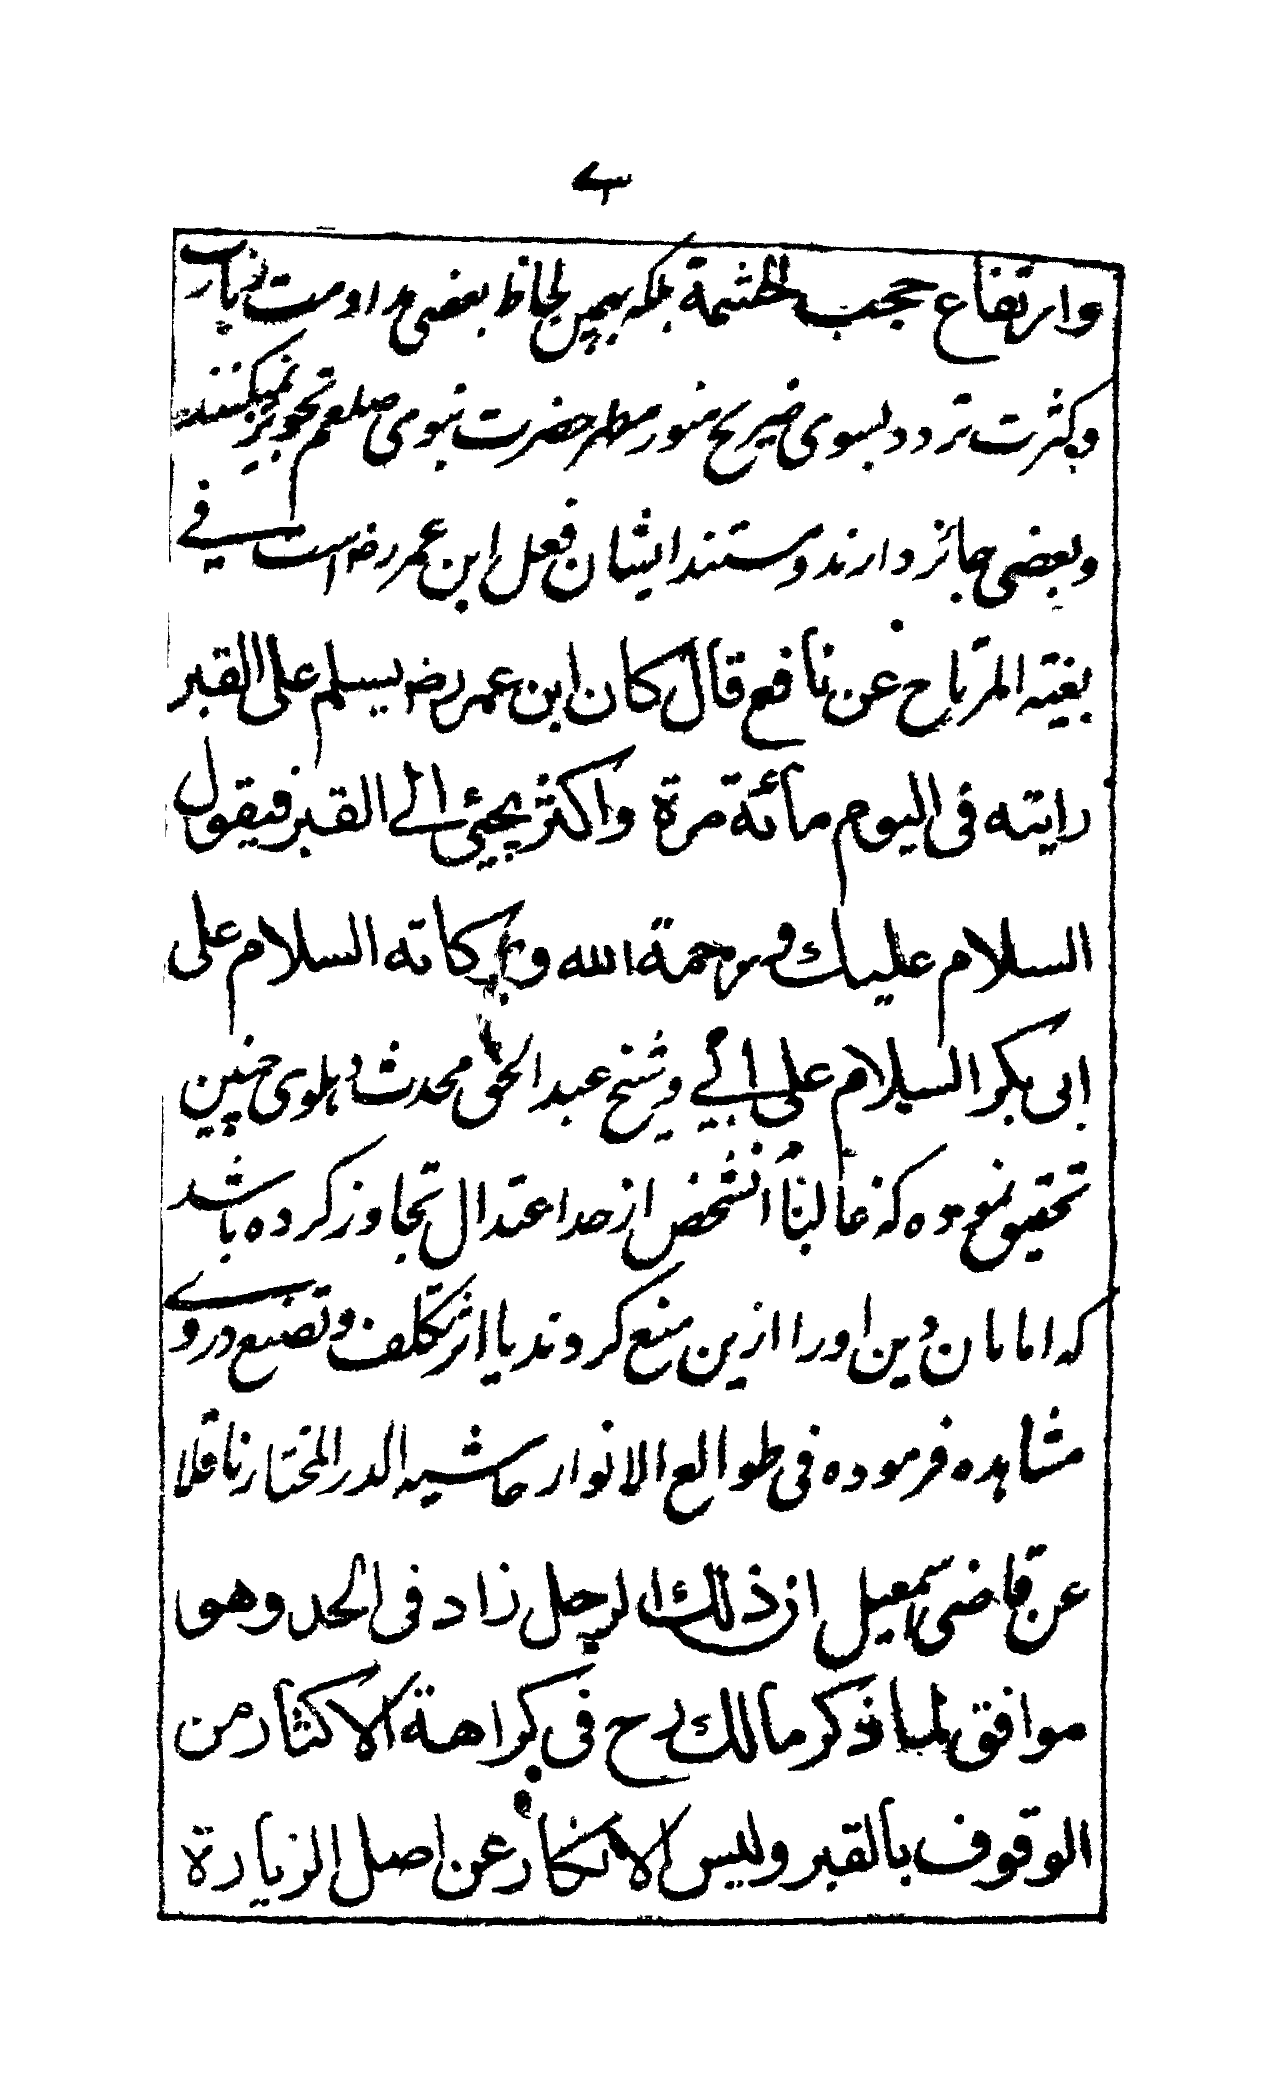 وارتفاع حجب الحشمة بلکه بهمین لحاظ بعضی مداومت زیارت
وکثرت تردد بسوی ضریح منور مطهر حضرت نبوی صلعم تجویز نمیکنند
وبعضی جائز دارند ومستند ایشان فعل ابن عمر رض است فے
بغیته المرتاح عن نافع قال کان ابن عمر رض یسلم علی القبر
رایته فی الیوم مائة مرة واکثر یجیئ الے القبر فیقول
السلام علیك ورحمة الله وبرکاته السلام علی
ابی بکر السلام علی ابے وشیخ عبد الحق محدث دہلوی چنین
تحقیق نموده که غالباً انشخص از حد اعتدال تجاوز کرده باشد
که امامان دین اورا ازین منع کردند یا اثر تکلف وتصنع دروے
مشاہده فرموده فی طوالع الانوار حاشیه الدر المختار ناقلا
عن قاضی اسمعیل ان ذلك الرجل زاد فی الحد وهو
موافق لما ذکر مالك رح فی کراهة الاکثار من
الوقوف بالقبر ولیس الانکار عن اصل الزیارة